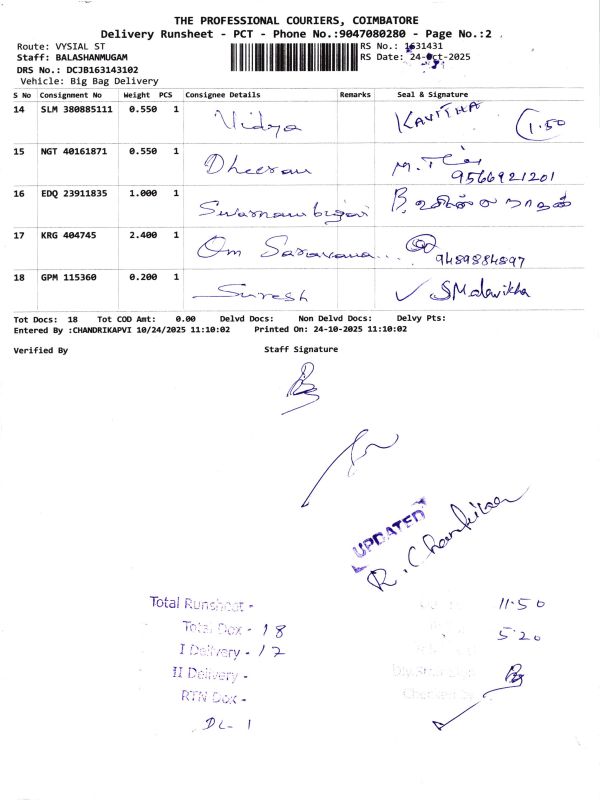 THE PROFESSIONAL COURIERS, COIMBATORE
Delivery Runsheet - PCT - Phone No.:9047080280 - Page No.:2
Route: VYSIAL ST RS No.: 1631431
Staff: BALASHANMUGAM RS Date: 24-Oct-2025
DRS No.: DCJB163143102
Vehicle: Big Bag Delivery
S No Consignment No Weight PCS Consignee Details Remarks Seal & Signature
14 SLM 380885111 0.550 1 Vidya KAVITHA 1.50
15 NGT 40161871 0.550 1 Dheeran
9566921201
16 EDQ 23911835 1.000 1 Swarnambigai B.
17 KRG 404745 2.400 1 Om Saravana...
9489884897
18 GPM 115360 0.200 1 Suresh ✓ SMalavikha
Tot Docs: 18 Tot COD Amt: 0.00 Delvd Docs: Non Delvd Docs: Delvy Pts:
Entered By :CHANDRIKAPVI 10/24/2025 11:10:02 Printed On: 24-10-2025 11:10:02
Verified By Staff Signature
UPDATED
Total Runsheet - 11.50
Total Dox - 18
5.20
I Delivery - 17
II Delivery -
RTN Dox -
DL - 1